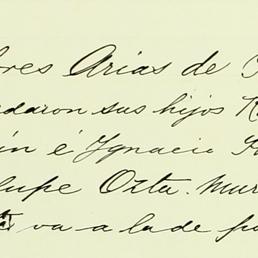 ores Arias de
daron sus hijos
ín é Ygnacio
lupe Ozta. Mur
va a la de